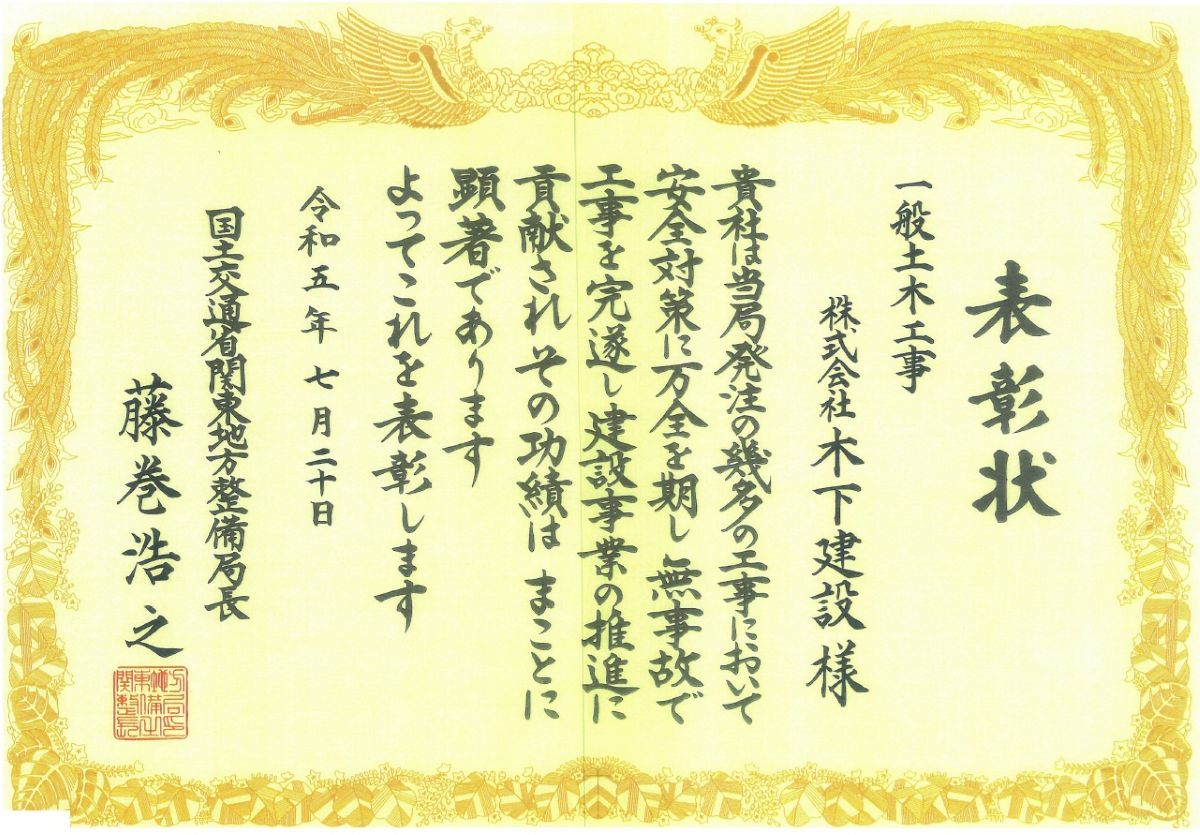 表彰状
一般土木工事
株式会社 木下建設様
貴社は当局発注の幾多の工事において
安全対策に万全を期し 無事故で
工事を完遂し 建設事業の推進に
貢献され その功績は まことに
顕著であります
よってこれを表彰します
令和五年七月二十日
国土交通省関東地方整備局長
藤巻浩之